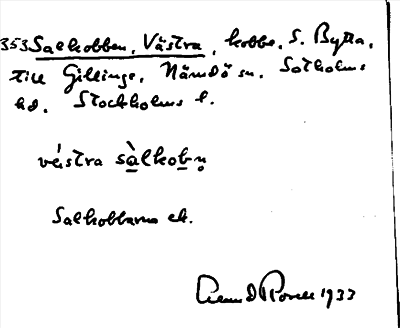 353 Salkobben, Västra, kobbe, S. Bytta,
till Gillinge, Nämdö sn. Sotholms
hd. Stockholms l.
västra sàlkobn̥
Salkobbarna ek.
1933